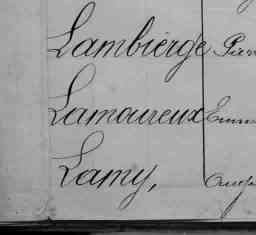 Lambierge
Lamoureux
Lamy,